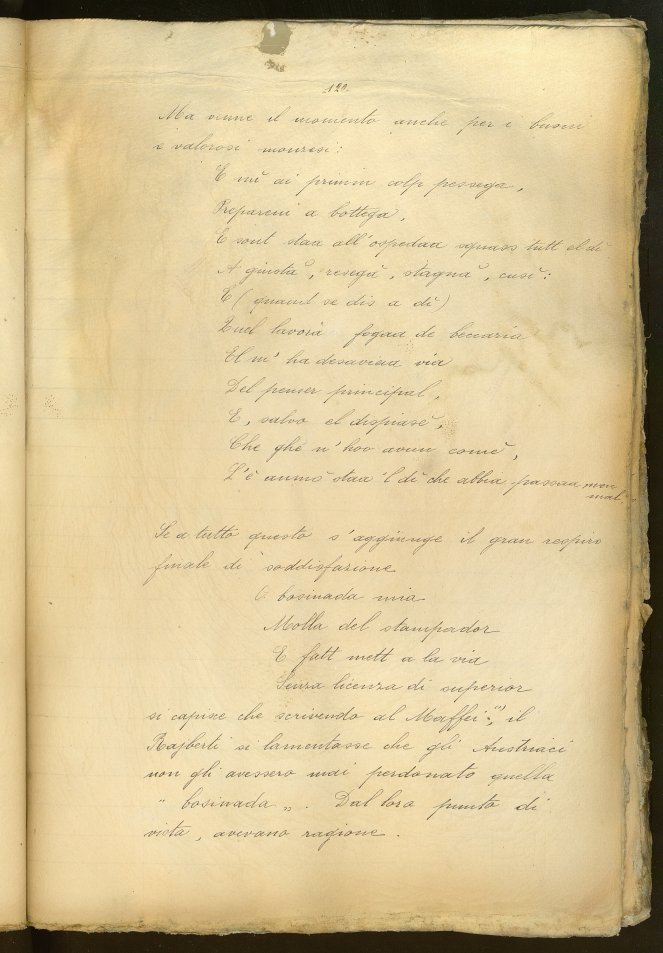 120.
Ma venne il momento anche per i buoni
e valorosi monzesi:
E mi ai primm colp pessega,
Repareni a bottega,
E sont staa all'ospedaa squass tutt el dì
A giustà, resegà, stagnà, cusì:
E (quand se dis a dì)
Quel lavorà fogaa de beccaria
El m'ha desaviaa via
Del penser principal,
E, salvo el dispiasè,
Che ghe n'hoo avuu comè,
L'è anmò staa 'l dì che abbia passaa men
mal.
Se a tutto questo s'aggiunge il gran respiro
finale di soddisfazione
O bosinada mia
Molla del stampador
E fatt mett a la via
Senza licenza di superior
si capisce che scrivendo al Maffei (1), il
Rajberti si lamentasse che gli Austriaci
non gli avessero mai perdonato quella
" bosinada „. Dal loro punto di
vista, avevano ragione.